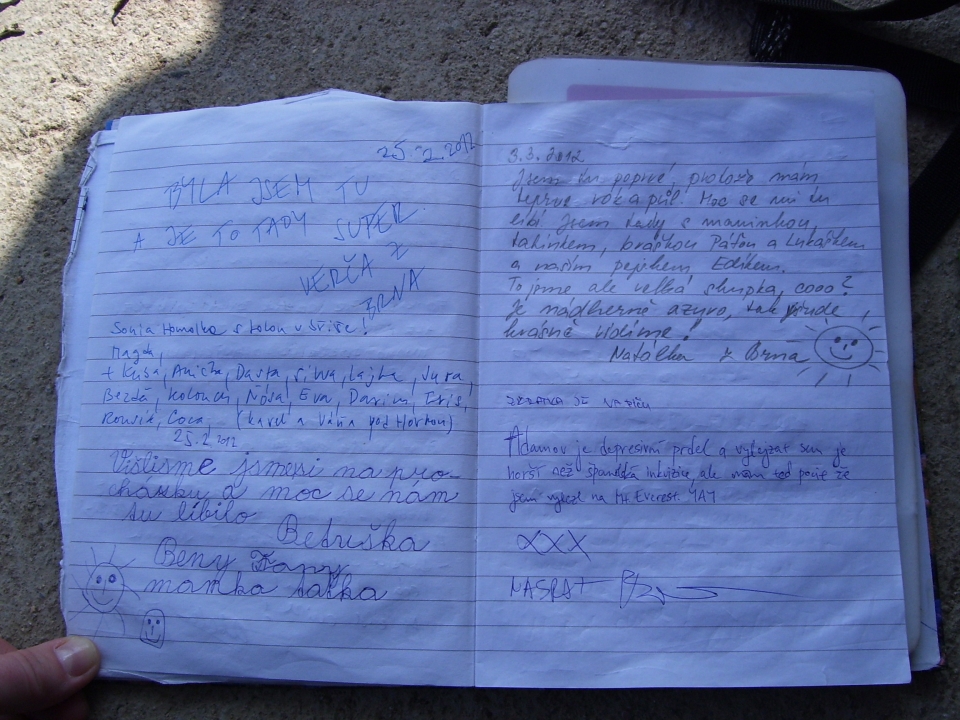 25.2.2012
BYLA JSEM TU
A JE TO TADY SUPER.
VERČA Z
BRNA
Sonia Homolka s kolou v !
Magda,
+ , Anička, Dasta, Silva, Lajka, Jura,
Bezdě, , Nóra, Eva, Darina, Iris,
, Coca, (Karel a Váňa pod Horkou)
25.2.2012
jsme si na pro-
cházku a moc se nám
tu líbilo
Betruška
Beny Fany
mamka taťka
3.3.2012
Jsem tu poprvé, protože mám
teprve rok a půl. Moc se mi tu
líbí. Jsem tady s maminkou,
tatínkem, bráškou Páťou a Lukáškem
a naším pejskem Edíkem.
To jsme ale velká skupka, cooo?
Je nádherně azyro, tak všude
krásně vidíme!
Natálka z Brna
JE NA PIČU
Adamov je depresivní prdel a vylejzat sem je
horší než španělská inkvizice, ale mám teď pocit že
jsem vylezl na Mt Everest. YAY
XXX
NASRAT